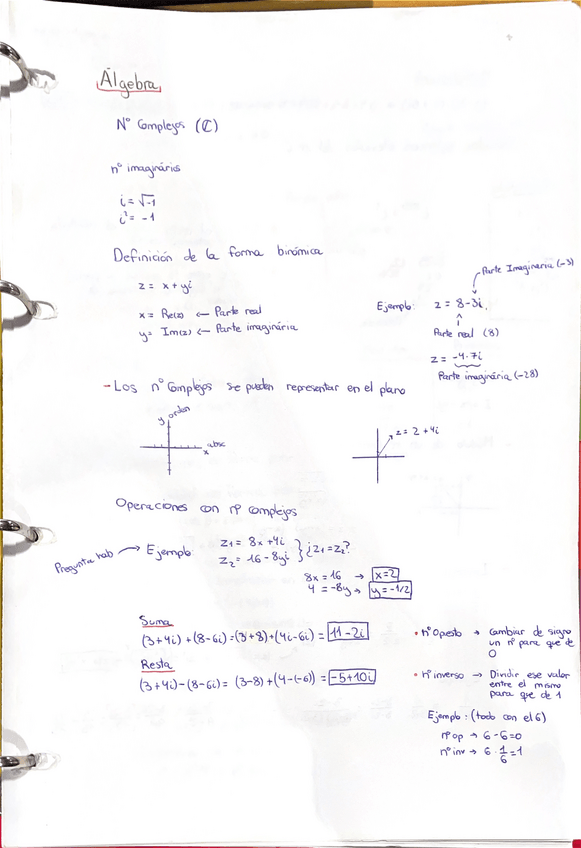 Álgebra
Nº Complejos (ℂ)
nº imaginários
i = √-1
i² = -1
Definición de la forma binómica
z = x + yi
x = Re(z) ← Parte real
y = Im(z) ← Parte imaginária
Parte Imaginaria (-3)
Ejemplo: z = 8-3i
Parte real (8)
z = -4·7i
Parte imaginária (-28)
- Los nº Complejos se pueden representar en el plano
y orden
absc
x
z = 2 + 4i
Operaciones con nº complejos
Pregunta → Ejemplo: z1 = 8x + 4i
z2 = 16 - 8yi } ¿z1 = z2?
8x = 16 → x=2
4 = -8y → y = -1/2
Suma
(3+4i) + (8-6i) = (3+8) + (4i-6i) = 11-2i
Resta
(3+4i) - (8-6i) = (3-8) + (4-(-6)) = -5+10i
• nº Opesto → Cambiar de signo
un nº para que de
0
• nº inverso → Dividir ese valor
entre el mismo
para que de 1
Ejemplo: (todo con el 6)
nº op → 6-6=0
nº inv → 6 · 1/6 = 1